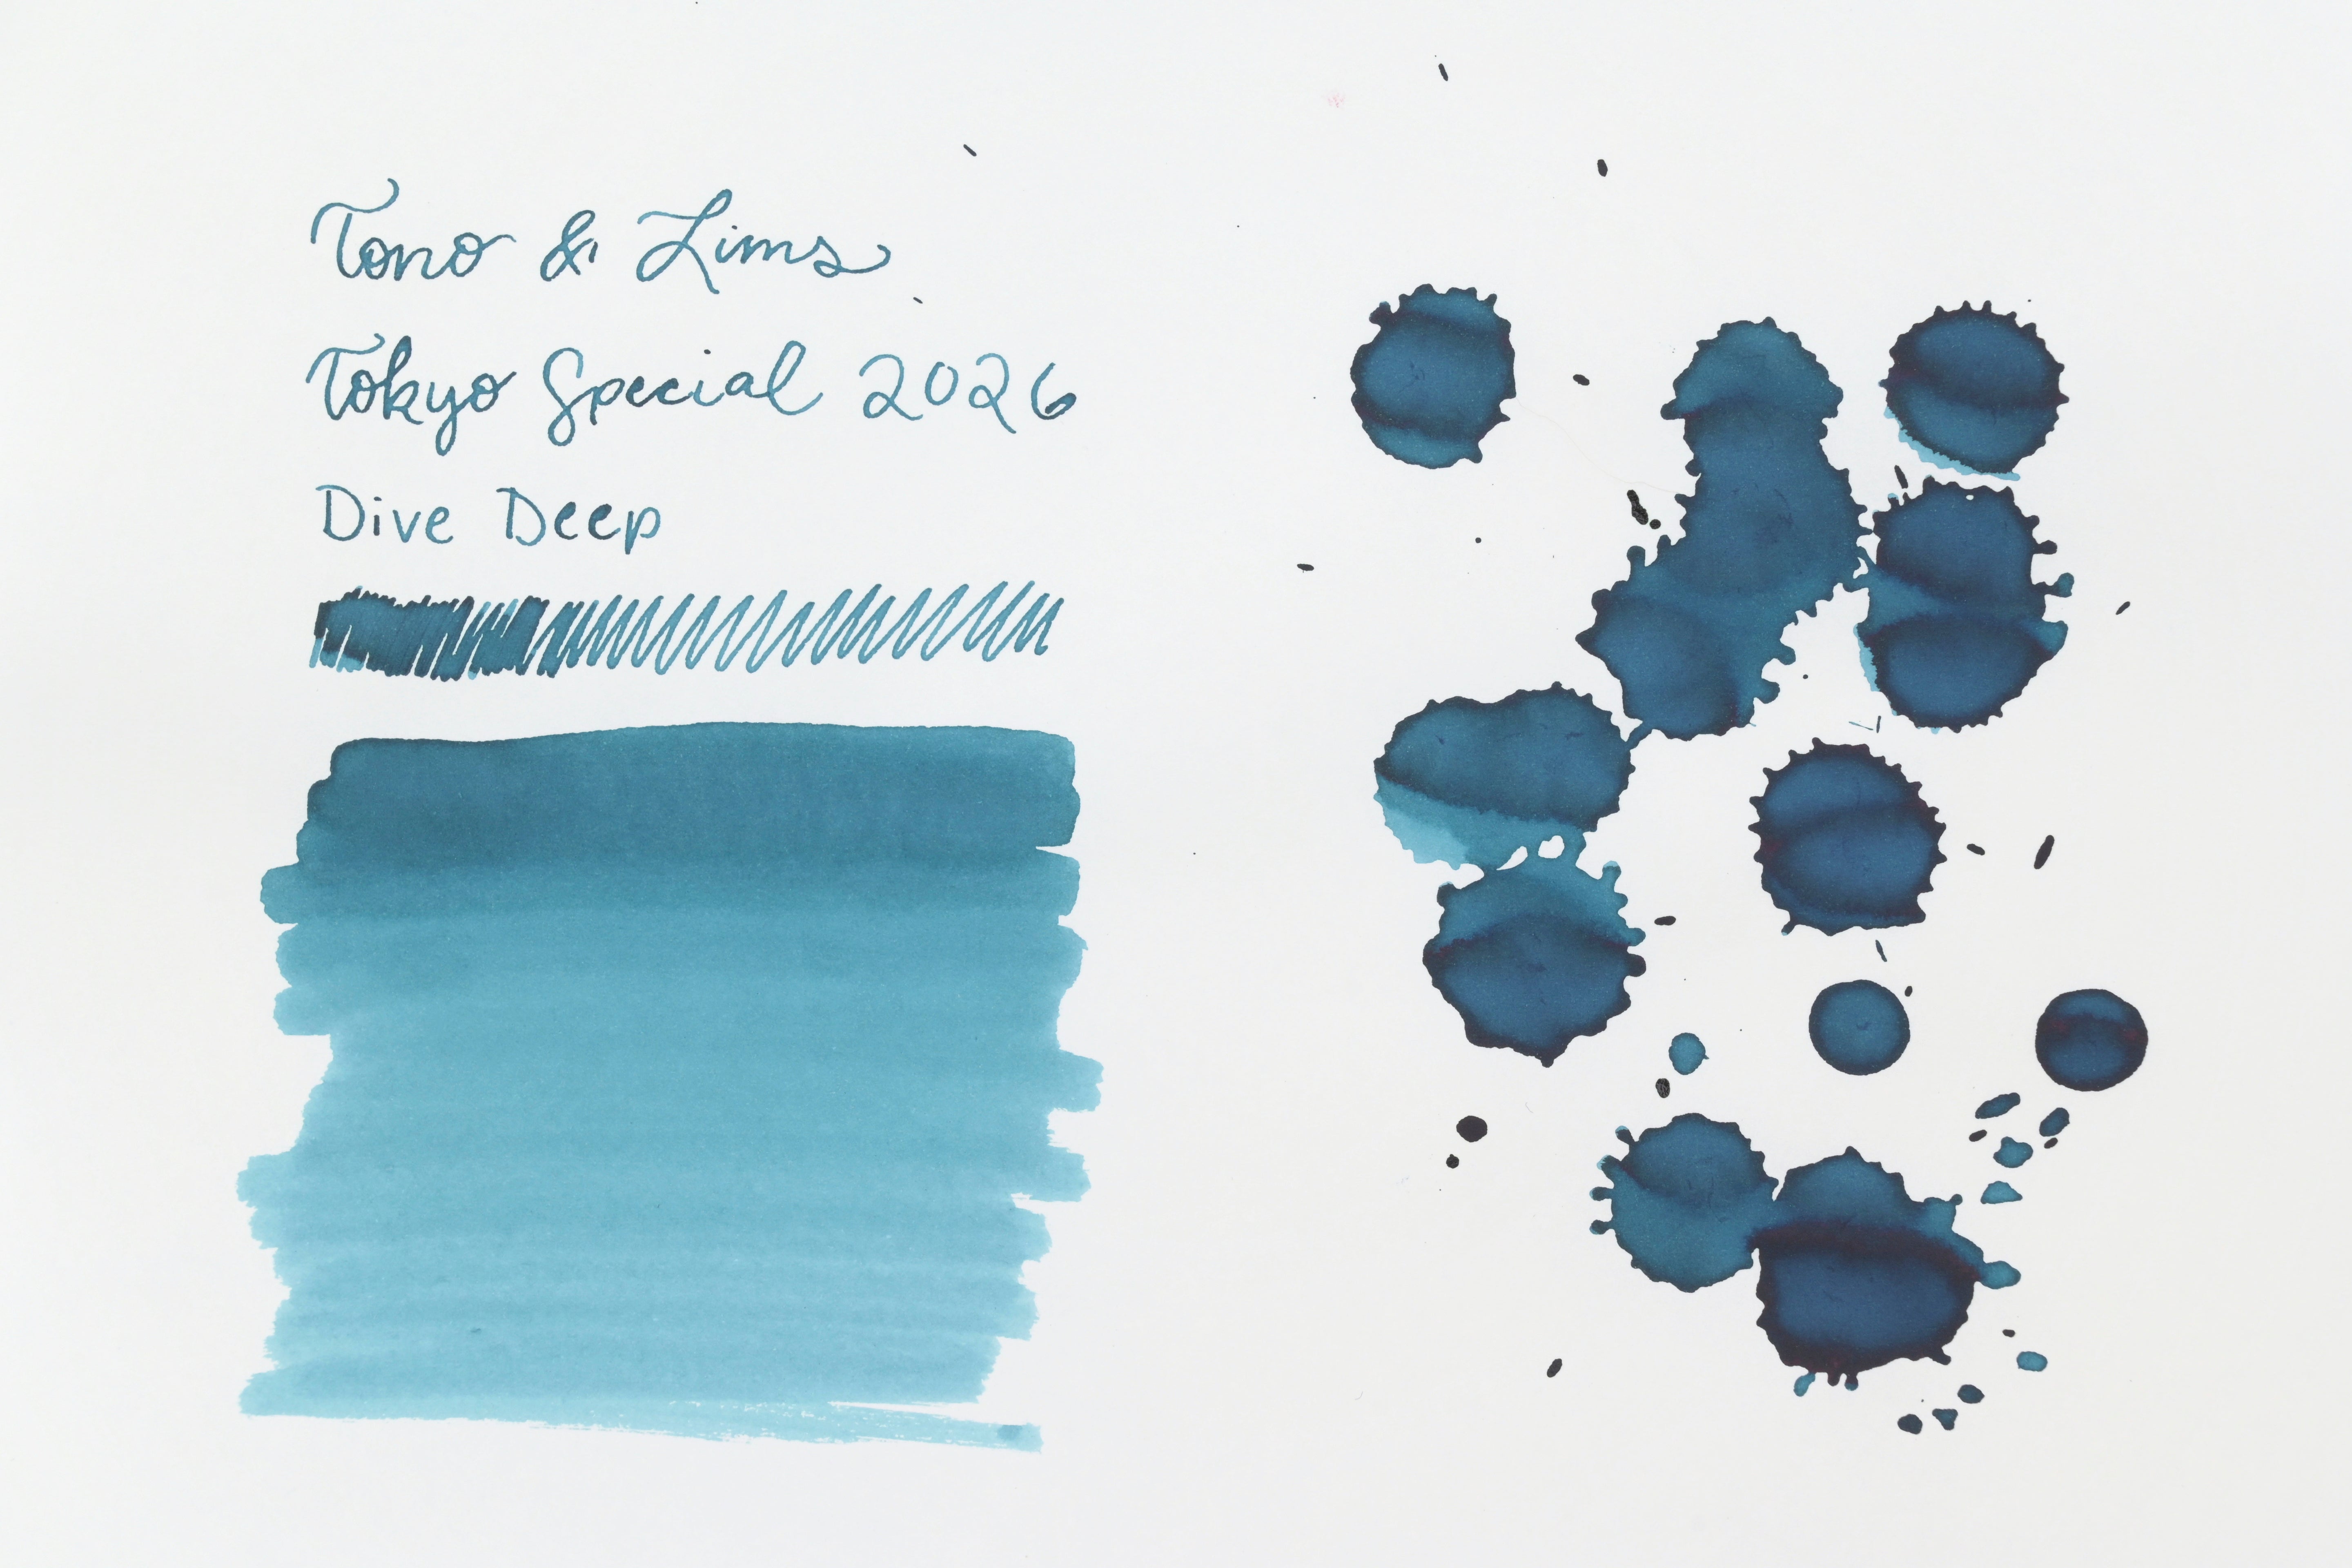 Tono & Lims
Tokyo Special 2026
Dive Deep